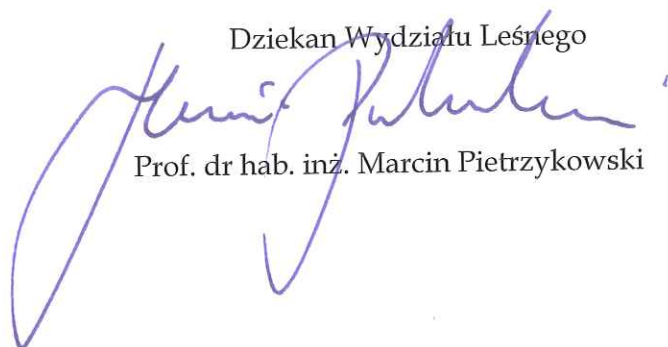 Dziekan Wydziału Leśnego
Prof. dr hab. inż. Marcin Pietrzykowski